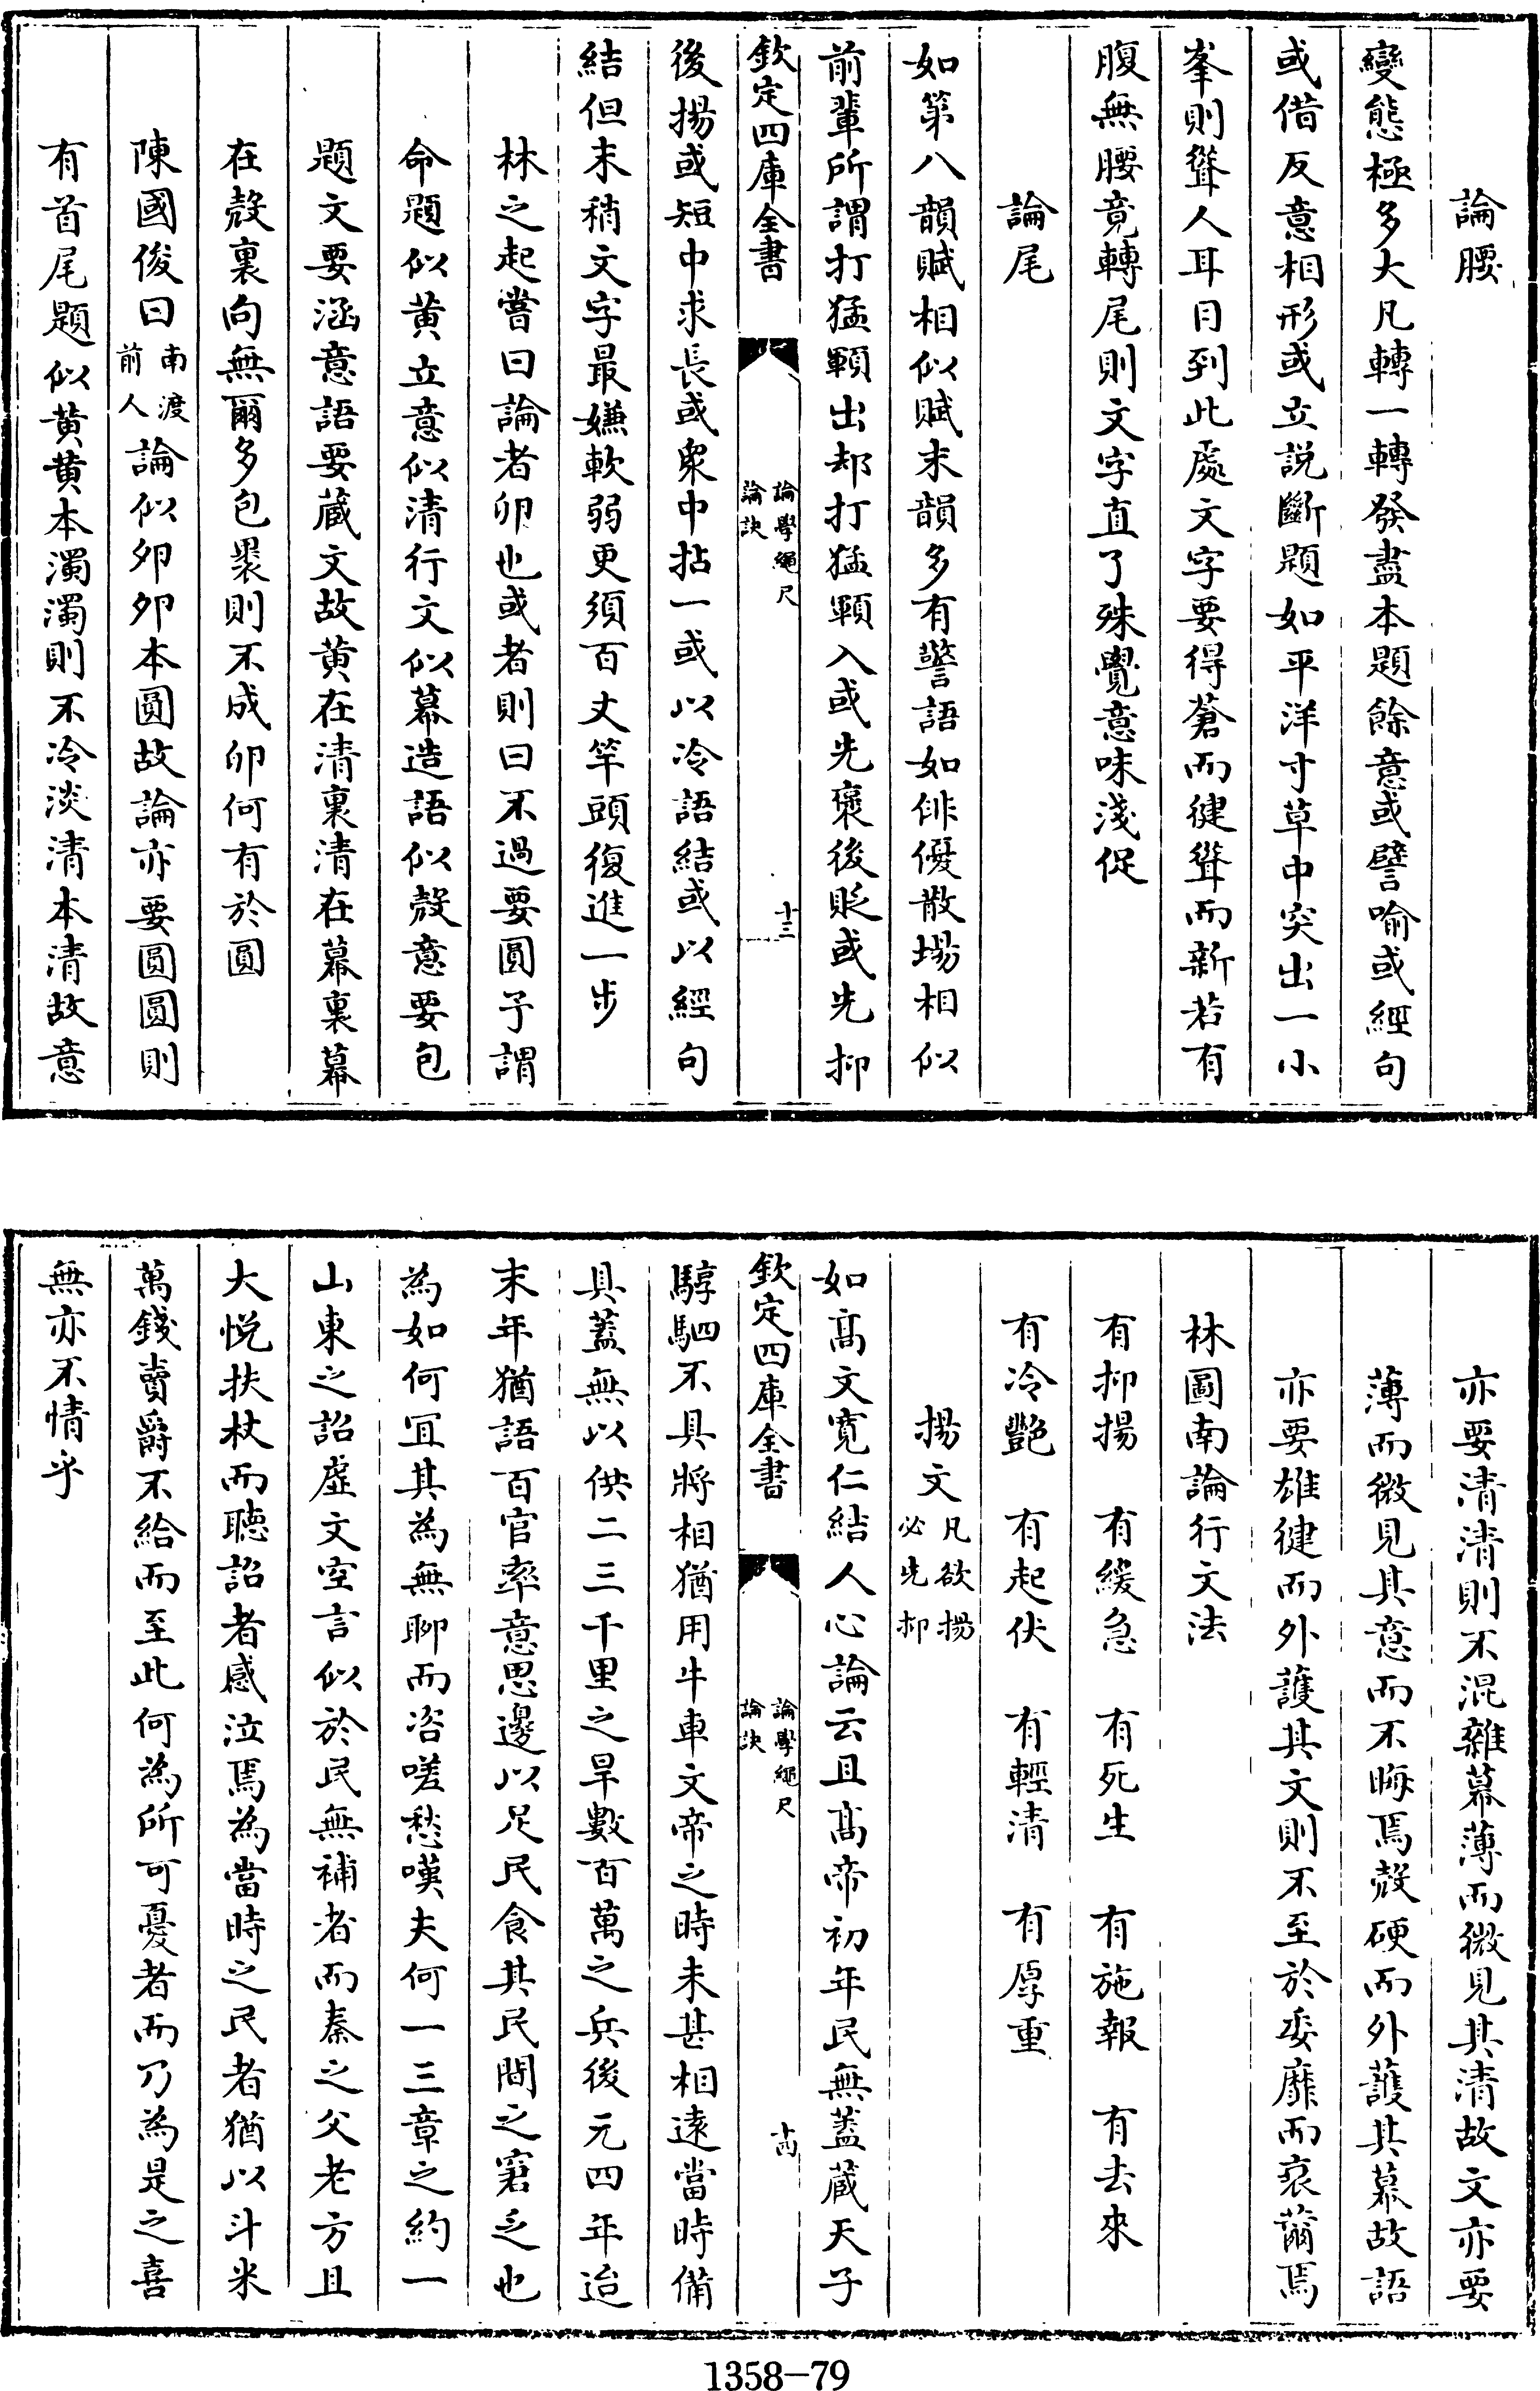 論腰
變態極多大凡轉一轉發盡本題餘意或譬喻或經句
或借反意相形或立説斷題如平洋寸草中突出一小
峯則聳人耳目到此處文字要得蒼而健聳而新若有
腹無腰竟轉尾則文字直了殊覺意味淺促
論尾
如第八韻賦相似賦末韻多有警語如俳優散場相似
前輩所謂打猛顆出却打猛顆入或先褒後貶或先抑
欽定四庫全書
論學繩尺
論訣
十三
後揚或短中求長或衆中拈一或以冷語結或以經句
結但末稍文字最嫌軟弱更須百丈竿頭復進一步
林之起嘗曰論者卵也或者則曰不過要圓子謂
命題似黄立意似清行文似幕造語似殼意要包
題文要涵意語要蔵文故黄在清裏清在幕裏幕
在殼裏向無爾多包褁則不成卵何有於圓
陳國俊曰南渡
前人論似卵卵本圓故論亦要圓圓則
有首尾題似黄黄本濁濁則不冷淡清本清故意
亦要清清則不混雜幕薄而微見其清故文亦要
薄而微見其意而不晦焉殼硬而外護其幕故語
亦要雄健而外護其文則不至於委靡而衰薾焉
林圖南論行文法
有抑揚　有緩急　有死生　有施報　有去來
有冷艷　有起伏　有輕清　有厚重
揚文凡欲揚
必先抑
如髙文寛仁結人心論云且髙帝初年民無蓋蔵天子
欽定四庫全書
論學繩尺
論訣
十四
騲駟不具將相猶用牛車文帝之時未甚相遠當時備
具蓋無以供二三千里之旱數百萬之兵後元四年迨
末年猶語百官率意思邊以足民食其民間之窘乏也
為如何冝其為無聊而咨嗟愁嘆夫何一三章之約一
山東之詔虚文空言似於民無補者而秦之父老方且
大悦扶杖而聴詔者感泣焉為當時之民者猶以斗米
萬錢賣爵不給而至此何為所可憂者而乃為是之喜
無亦不情乎
1358-79